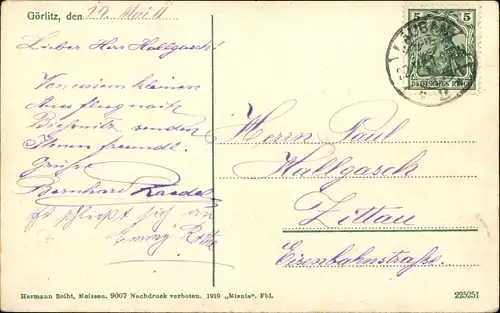 Görlitz, den 29. Mai 11
Lieber Herr Hallgasch!
Von einem kleinen
Ausflug nach
Biesnitz senden
Ihnen freundl.
Grüße
Bernhard Raedel
Es schließt sich an
Emmy
5 5
DEUTSCHES REICH
Herrn Paul
Hallgasch
Zittau
Eisenbahnstraße
Hermann Seibt, Meissen. 9007 Nachdruck verboten. 1910 „Misnia“. Fbl.
225251